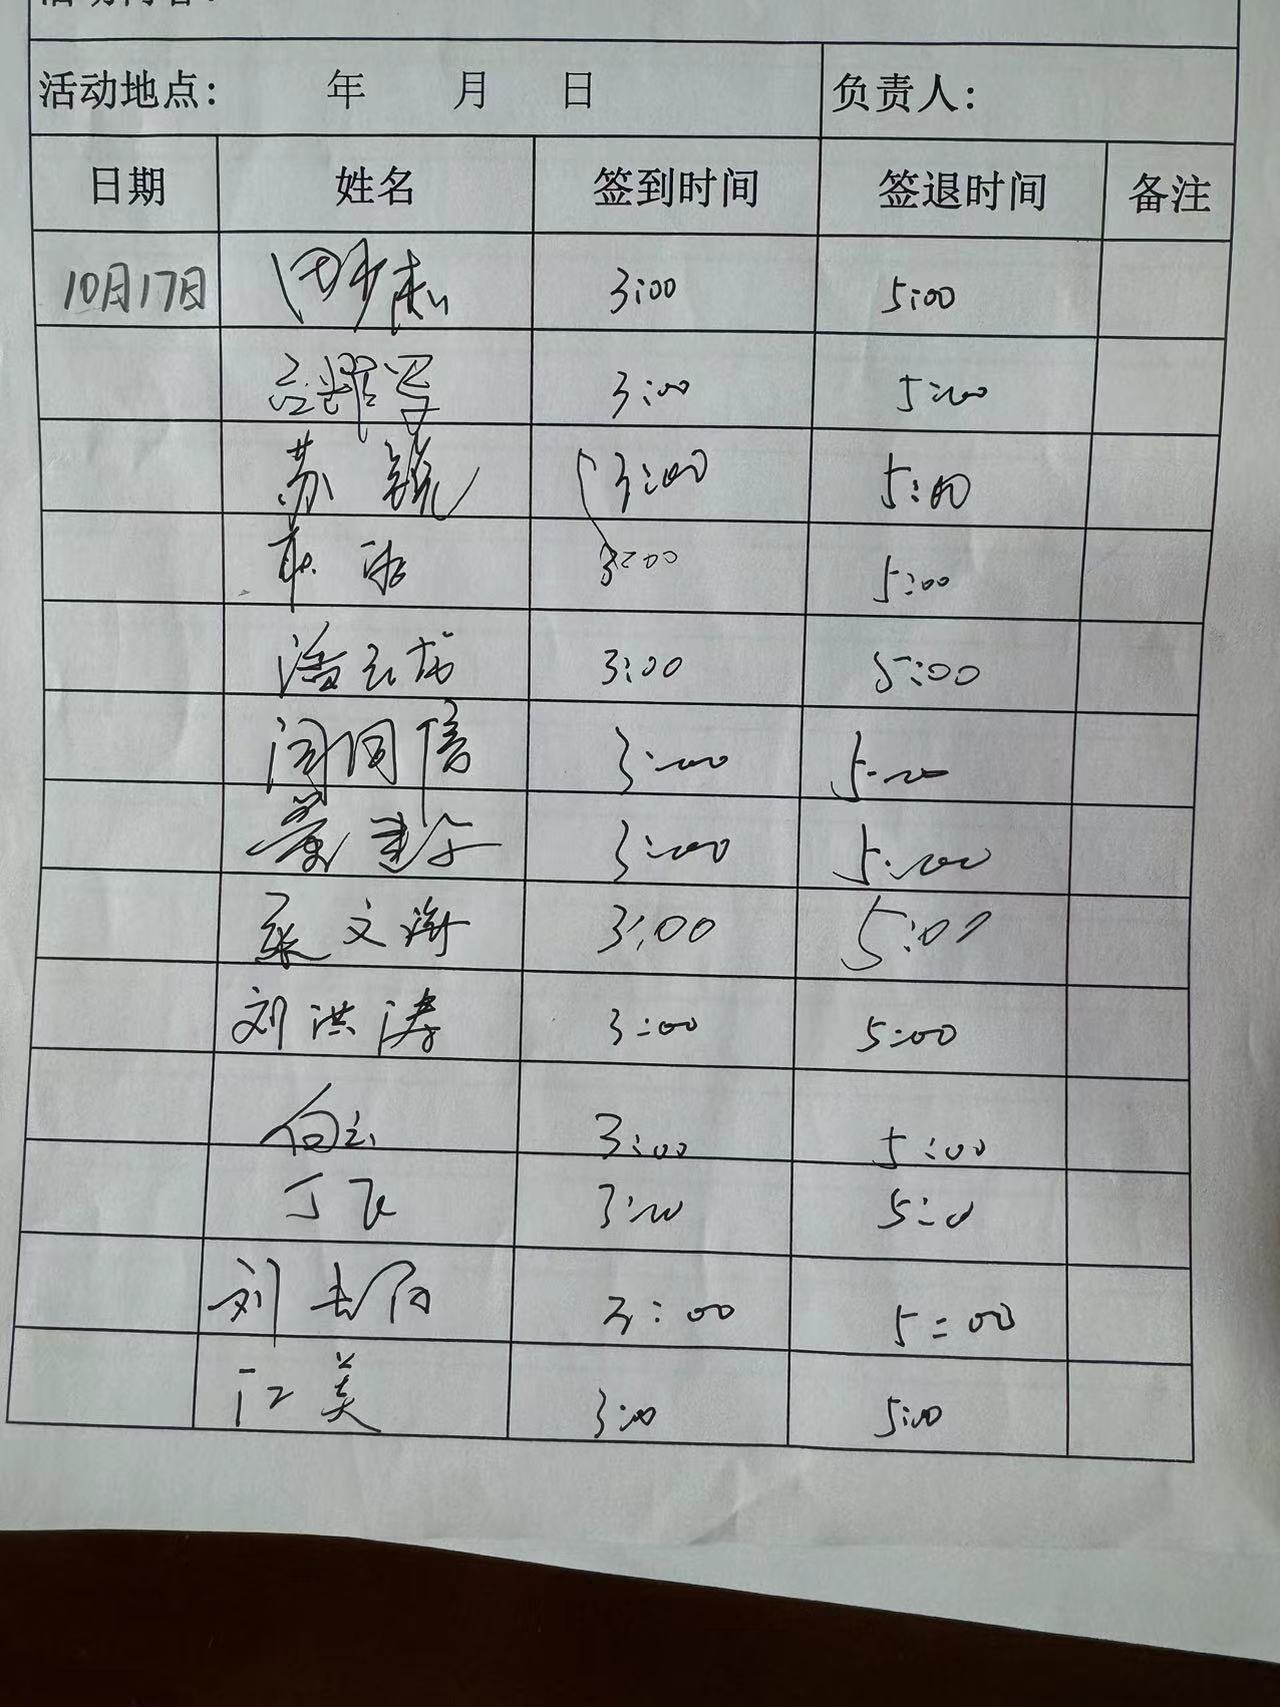 活动地点： 年 月 日 负责人：
日期 姓名 签到时间 签退时间 备注
10月17日 3:00 5:00
3:00 5:00
苏锐 3:00 5:00
3:00 5:00
潘云龙 3:00 5:00
闫同信 3:00 5:00
3:00 5:00
文海 3:00 5:00
刘洪涛 3:00 5:00
白云 3:00 5:00
丁飞 3:00 5:00
刘 3:00 5:00
江美 3:00 5:00